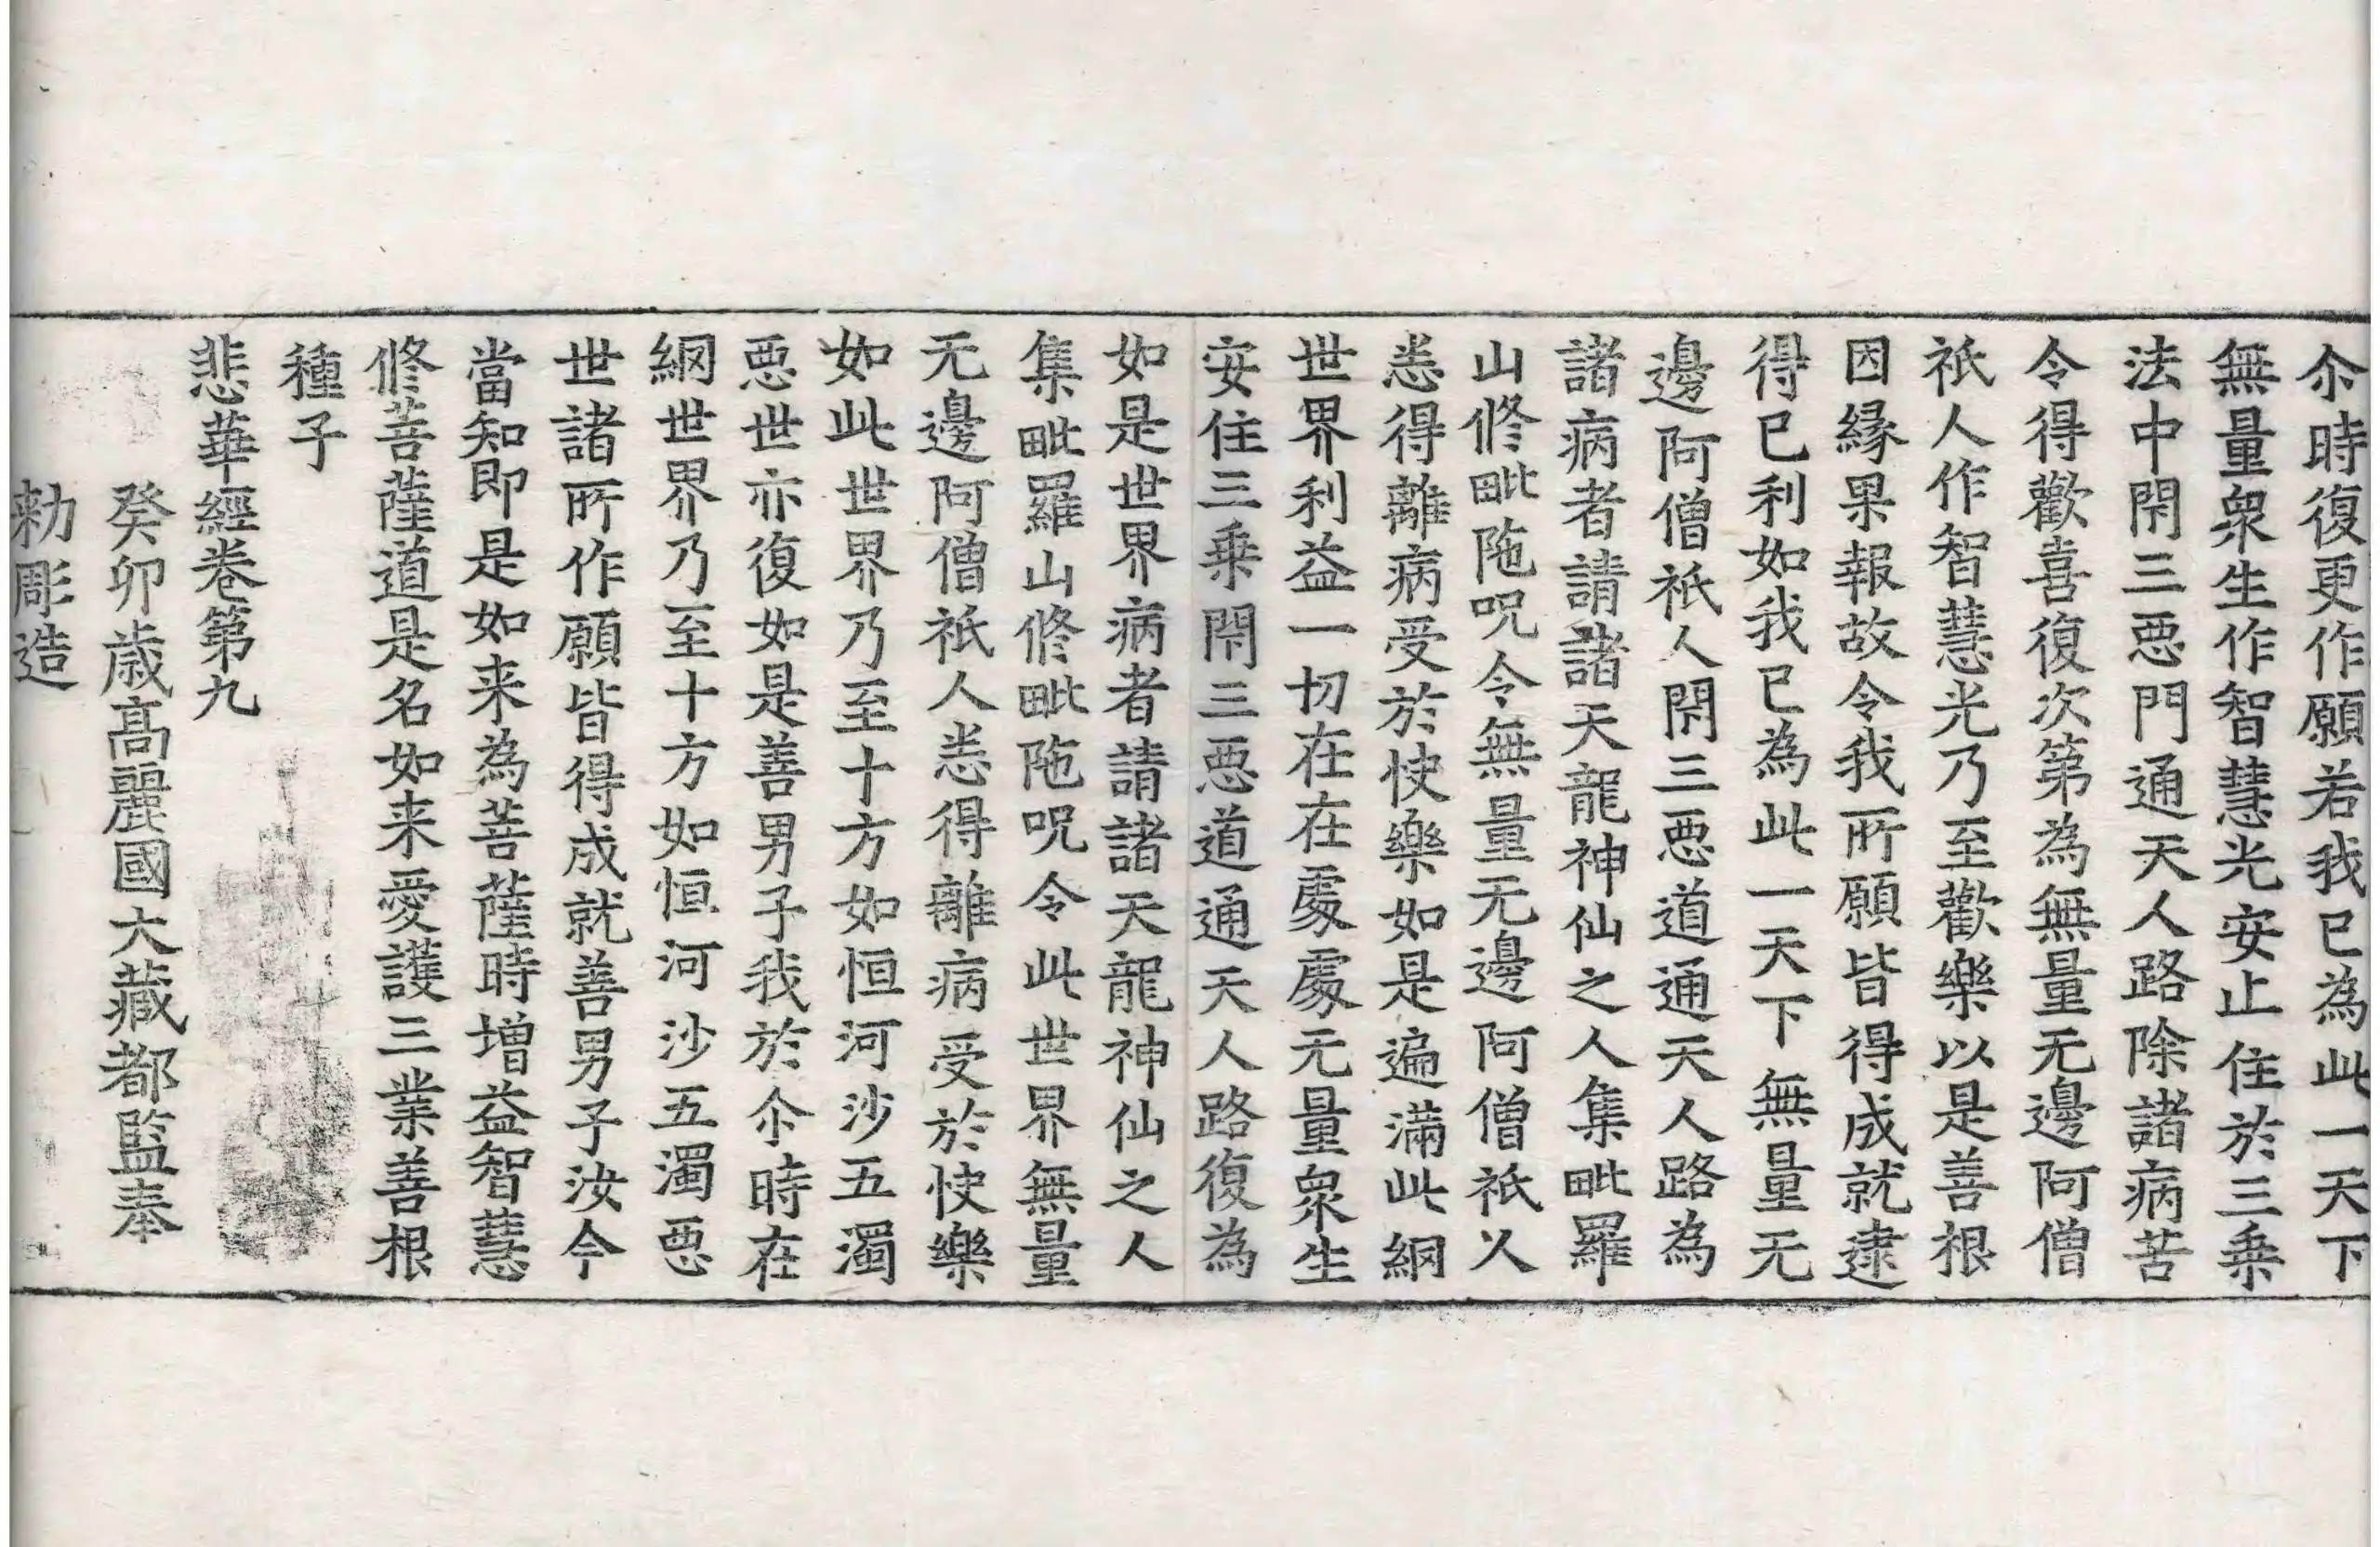 尒時復更作願若我已為此一天下
無量衆生作智慧光安止住於三乗
法中閇三惡門通天人路除諸病苦
令得歡喜復次第為無量无邊阿僧
祇人作智慧光乃至歡樂以是善根
因縁果報故令我所願皆得成就逮
得已利如我已為此一天下無量无
邊阿僧祇人閇三惡道通天人路為
諸病者請諸天龍神仙之人集毗羅
山修毗陁呪令無量无邊阿僧祇人
悉得離病受於快樂如是遍滿此網
世界利益一切在在處處无量衆生
安住三乗閇三惡道通天人路復為
如是世界病者請諸天龍神仙之人
集毗羅山修毗陁呪令此世界無量
无邊阿僧祇人悉得離病受於快樂
如此世界乃至十方如恒河沙五濁
惡世亦復如是善男子我於尒時在
網世界乃至十方如恒河沙五濁惡
世諸所作願皆得成就善男子汝今
當知即是如来為菩薩時增益智慧
修菩薩道是名如来愛護三業善根
種子
悲華經卷第九
癸卯歳高麗國大藏都監奉
勅彫造